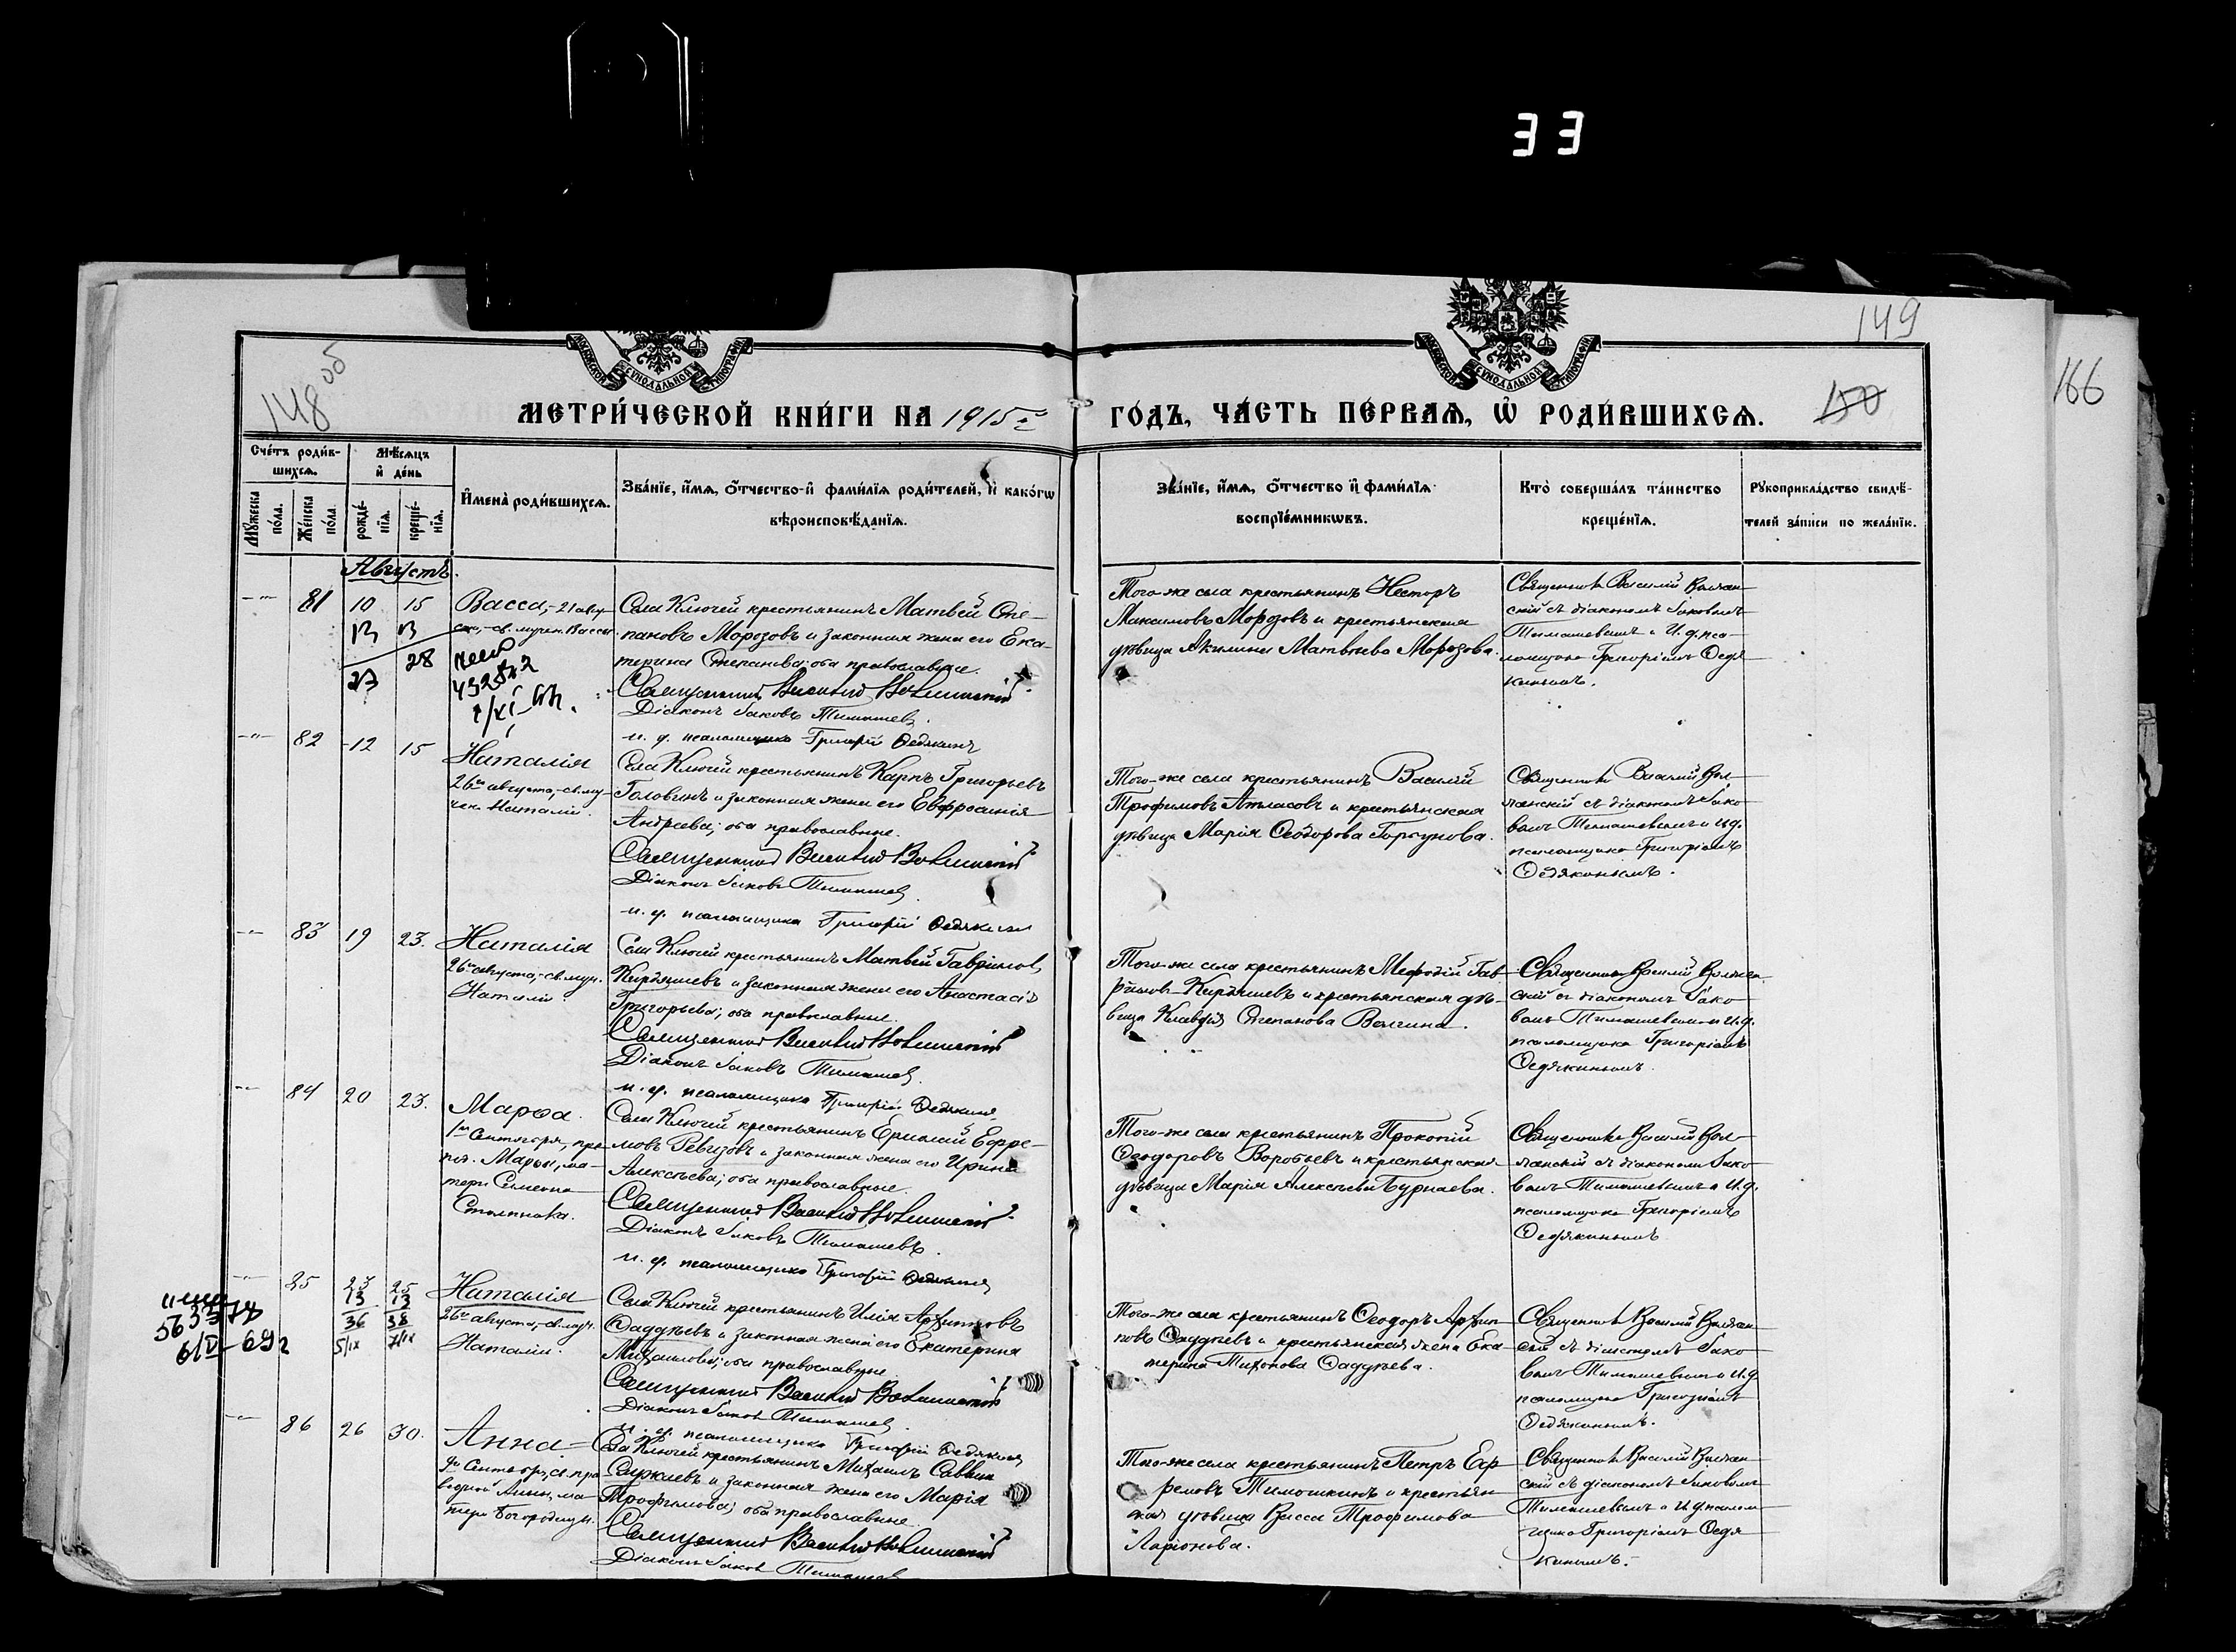 33
149
166
148 об
150
МОСКОВСКОЙ СѴНОДАЛЬНОЙ ТИПОГРАФІИ
МОСКОВСКОЙ СѴНОДАЛЬНОЙ ТИПОГРАФІИ
МЕТРИ́ЧЕСКОЙ КНИ́ГИ НА 1915 й ГО́ДЪ, ЧА́СТЬ ПЕ́РВАЯ, Ѡ РОДИ́ВШИХСЯ.
Сче́тъ роди́в-
шихся.
Мѣ́сяцъ
и де́нь
Мꙋ́жеска по́ла.
Же́нска по́ла.
рожде́-
нїя.
креще́-
нїя.
И҆мена̀ роди́вшихся.
Зва́нїе, и҆́мя, ѻ҆́тчество и҆ фами́лїя роди́телей, и҆ како́гѡ
вѣроисповѣ́данїя.
Зва́нїе, и҆́мя, ѻ҆́тчество и҆ фами́лїя
воспрїе́мникѡвъ.
Кто̀ соверша́лъ та́инство
креще́нїя.
Рꙋкоприкла́дство свидѣ́-
телей за́писи по жела́нїю.
Августъ.
81 10 15
Васса, - 21 авгу-
ста, - св. мучен. Вассы
13 13
23 28
Села Ключей крестьянинъ Матвѣй Сте-
пановъ Морозовъ и законная жена его Ека-
терина Степанова; оба православные.
Священникъ Василій Волчанскій
Діаконъ Іаковъ Тимашев
и. д. псаломщика Григорій Федякинъ
Того-же села крестьянинъ Несторъ
Максимовъ Морозовъ и крестьянская
дѣвица Акилина Матвѣева Морозова.
Священникъ Василій Волчан-
скій съ діакономъ Іаковомъ
Тимашевымъ и И. д. пса-
ломщика Григоріемъ Федя
кинымъ.
82 12 15
Наталія
26го августа, - св. му-
чен. Наталіи.
Села Ключей крестьянинъ Карпъ Григорьевъ
Головинъ и законная жена его Евфросинія
Андреева; оба православные.
Священникъ Василій Волчанскій
Діаконъ Іаковъ Тимашев
и. д. псаломщика Григорій Федякин
Того-же села крестьянинъ Василій
Трофимовъ Атласовъ и крестьянская
дѣвица Марія Ѳеодорова Горгунова.
Священникъ Василій Вол-
чанскій съ діакономъ Іако
вомъ Тимашевымъ и и д.
псаломщика Григоріемъ
Федякинымъ.
83 19 23.
Наталія
26го августа, - св. муч.
Наталіи
Села Ключей крестьянинъ Матвѣй Гаврилов
Кирдяшевъ и законная жена его Анастасія
Григорьева; оба православные.
Священникъ Василій Волчанскій
Діаконъ Іаковъ Тимашев
и. д. псаломщика Григорій Федякин
Того-же села крестьянинъ Мефодій Гав-
риловъ Кирдяшевъ и крестьянская дѣ-
вица Клавдія Степанова Волгина.
Священникъ Василій Волчан
скій съ діакономъ Іако
вомъ Тимашевымъ и И. д.
псаломщика Григоріемъ
Федякинымъ.
84 20 23.
Марѳа.
1го Сентября, пре-
под. Марѳы, ма-
тери Симеона
Столпника.
Села Ключей крестьянинъ Ермолай Ефре-
мовъ Ревизовъ и законная жена его Ирина
Алексѣева; оба православные.
Священникъ Василій Волчанскій
Діаконъ Іаковъ Тимашевъ.
и. д. псаломщика Григорій Федякин
Того-же села крестьянинъ Прокопій
Ѳеодоровъ Воробьевъ и крестьянская
дѣвица Марія Алексѣева Бурнаева.
Священникъ Василій Вол-
чанскій съ діакономъ Іако
вомъ Тимашевымъ и И. д.
псаломщика Григоріемъ
Федякинымъ
85 23 25
13 13
36 38
5/IX 7/IX
6/V - 69 г
Наталія
26го августа, - св. муч.
Наталіи.
Села Ключей крестьянинъ Илія Архиповъ
Фаддѣевъ и законная жена его Екатерина
Михаилова; оба православные
Священникъ Василій Волчанскій
Діаконъ Іаков Тимашев
и. д. псаломщика Григорій Федякин
Того-же села крестьянинъ Ѳеодоръ Архип-
повъ Фаддѣевъ и крестьянская жена Ека-
терина Тихонова Фаддѣева.
Священникъ Василій Волчан
скій съ діакономъ Іако
вомъ Тимашевымъ и И. д
псаломщика Григоріемъ
Федякинымъ.
86 26 30.
Анна
9го Сентября, св. пра
ведной Анны, ма-
тери Богородицы.
Села Ключей крестьянинъ Михаилъ Саввин
Сиркаевъ и законная жена его Марія
Трофимова; оба православные.
Священникъ Василій Волчанскій
Діаконъ Іаков Тимашев
Того-же села крестьянинъ Петръ Еф
ремовъ Тимошкинъ и крестьян
ская дѣвица Васса Трофимова
Ларіонова.
Священникъ Василій Волчан
скій съ діакономъ Іаковомъ
Тимашевымъ и И. д. псалом
щика Григоріемъ Федя
кинымъ.